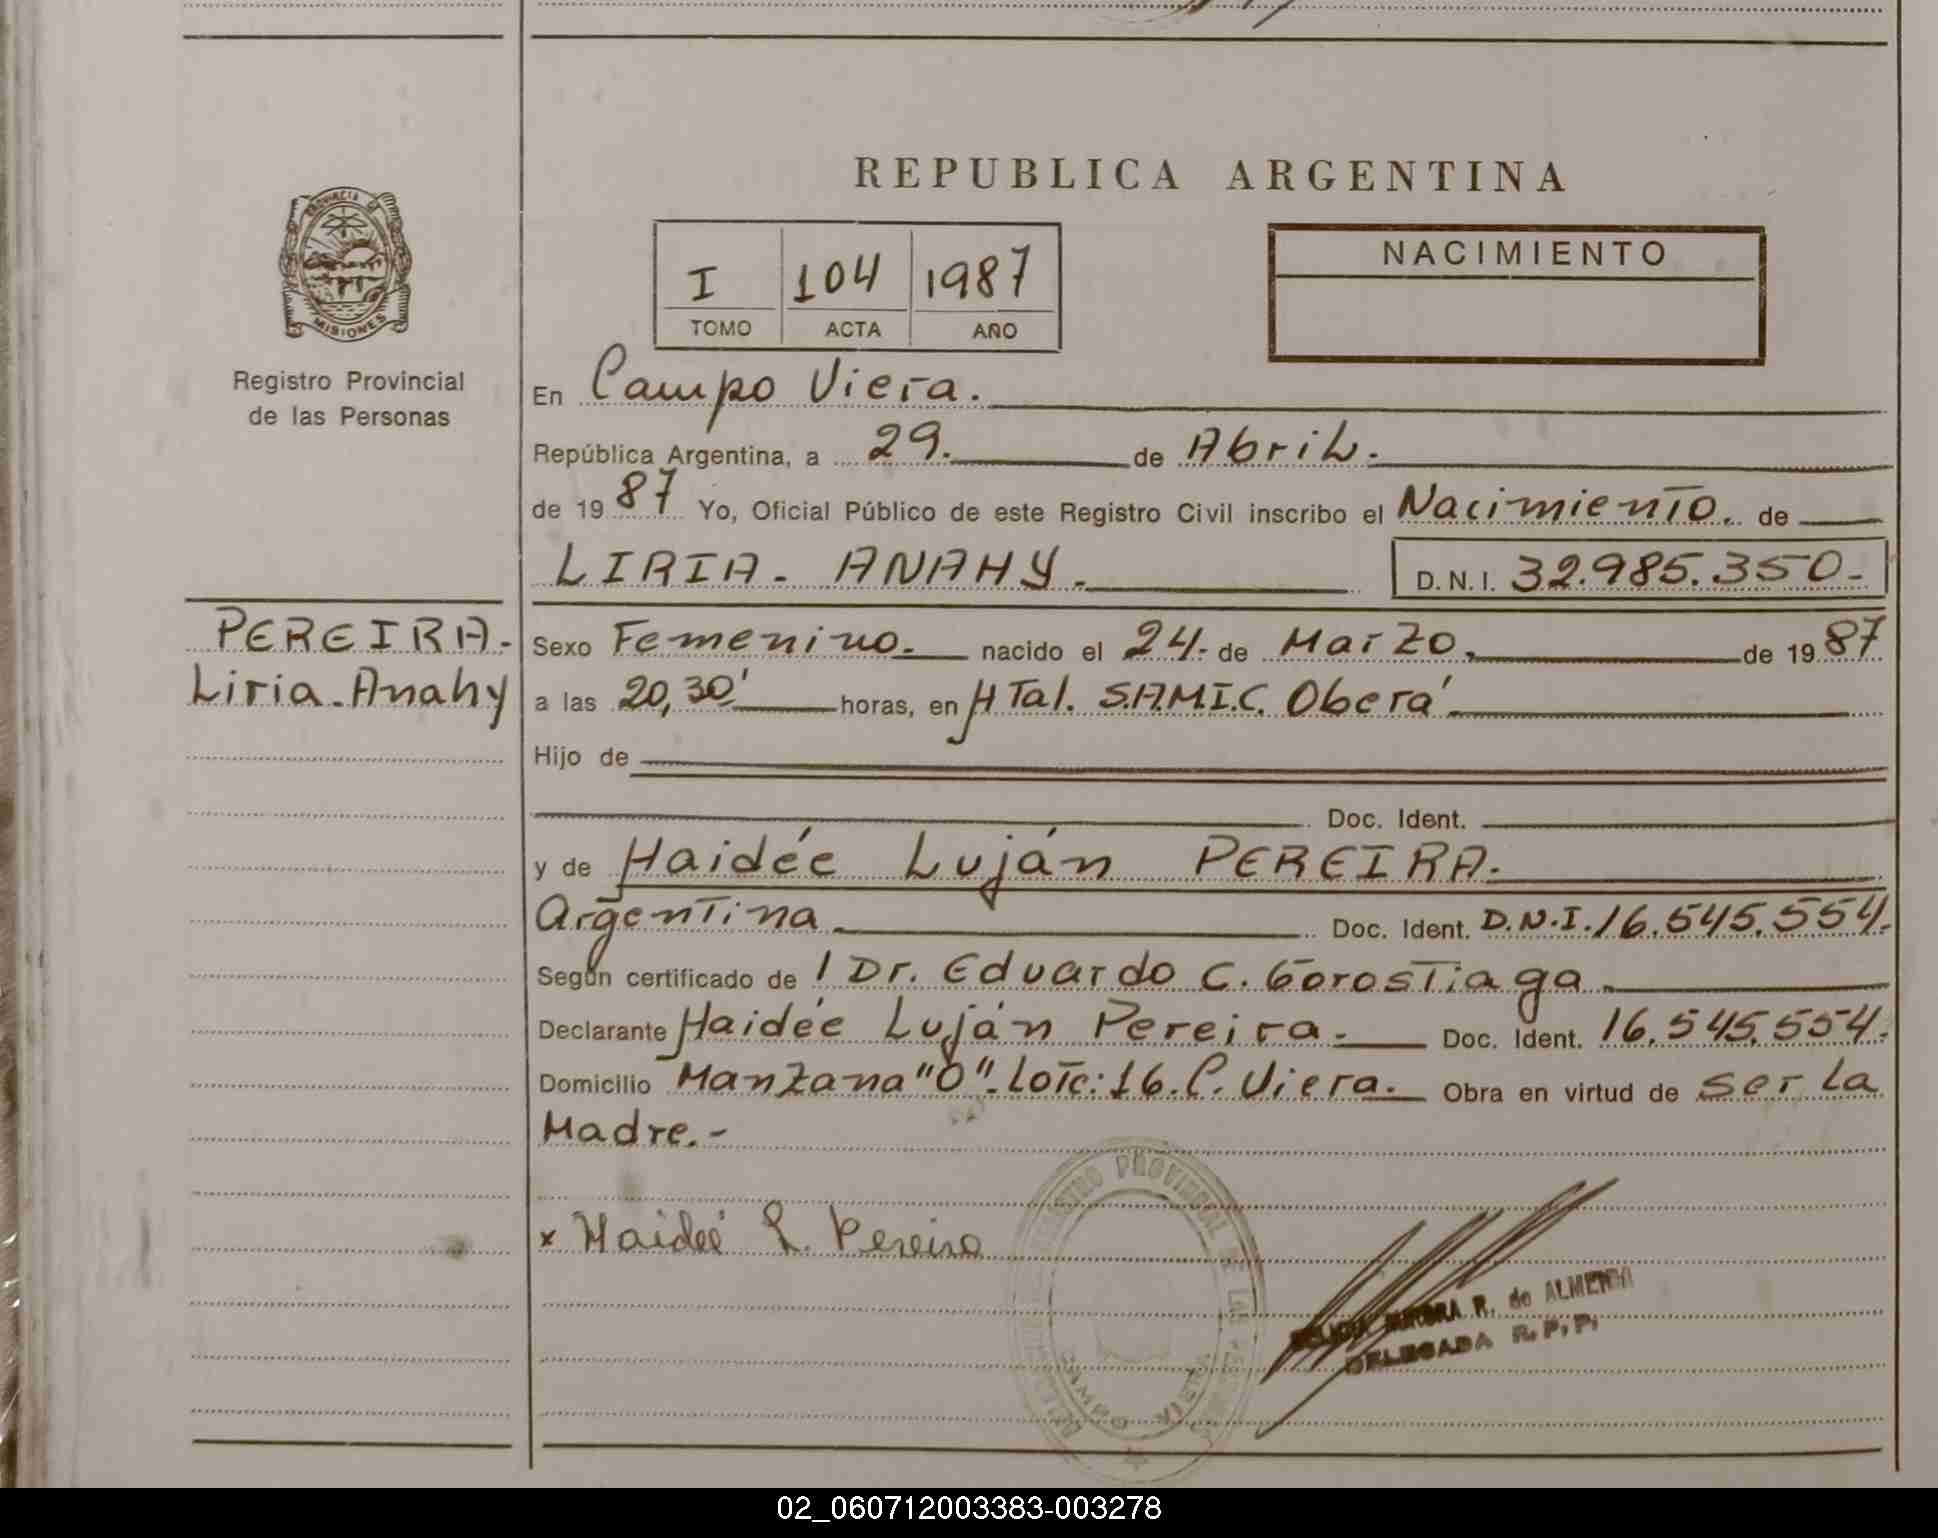 REPUBLICA ARGENTINA
PROVINCIA DE
MISIONES
Registro Provincial
de las Personas
I 104 1987
TOMO ACTA AÑO
NACIMIENTO
En Campo Viera.
República Argentina, a 29. de Abril.
de 1987 Yo, Oficial Público de este Registro Civil inscribo el Nacimiento. de
LIRIA. ANAHY. D.N.I. 32.985.350-
PEREIRA.
Liria.Anahy
Sexo Femenino. nacido el 24. de Marzo, de 1987
a las 20,30' horas, en HTal. S.A.M.I.C. Oberá
Hijo de
Doc. Ident.
y de Haidée Luján PEREIRA.
Argentina Doc. Ident. D.N.I. 16.545.554.
Según certificado de l Dr. Eduardo C. Gorostiaga
Declarante Haidée Luján Pereira. Doc. Ident. 16.545.554.
Domicilio Manzana "O". Lote: 16. C. Viera. Obra en virtud de ser la
Madre.-
x Haideé L. Pereira
REGISTRO PROVINCIAL DE LAS PERSONAS
CAMPO VIERA
R. de ALMEIDA
DELEGADA R.P.P.
02_060712003383-003278